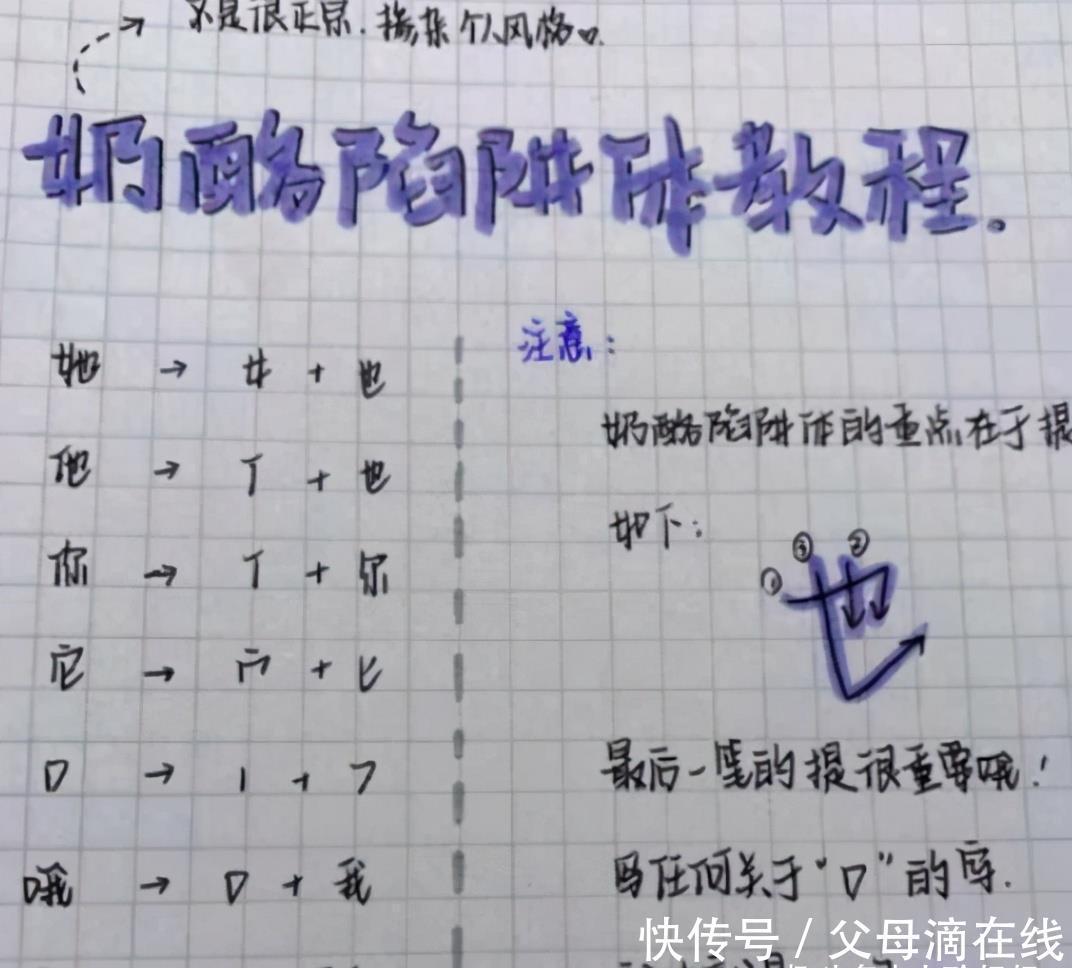 不是很正常.掺杂个人风格♡.
奶酪陷阱体教程。
她 → 女 + 也
他 → 亻 + 也
你 → 亻 + 尔
它 → 宀 + 匕
口 → 丨 + ㇆
哦 → 口 + 我
注意:
奶酪陷阱体的重点在于提
如下:
① ③ ②
也
最后一笔的提很重要哦!
写任何关于“口”的字.
快传号 / 父母滴在线